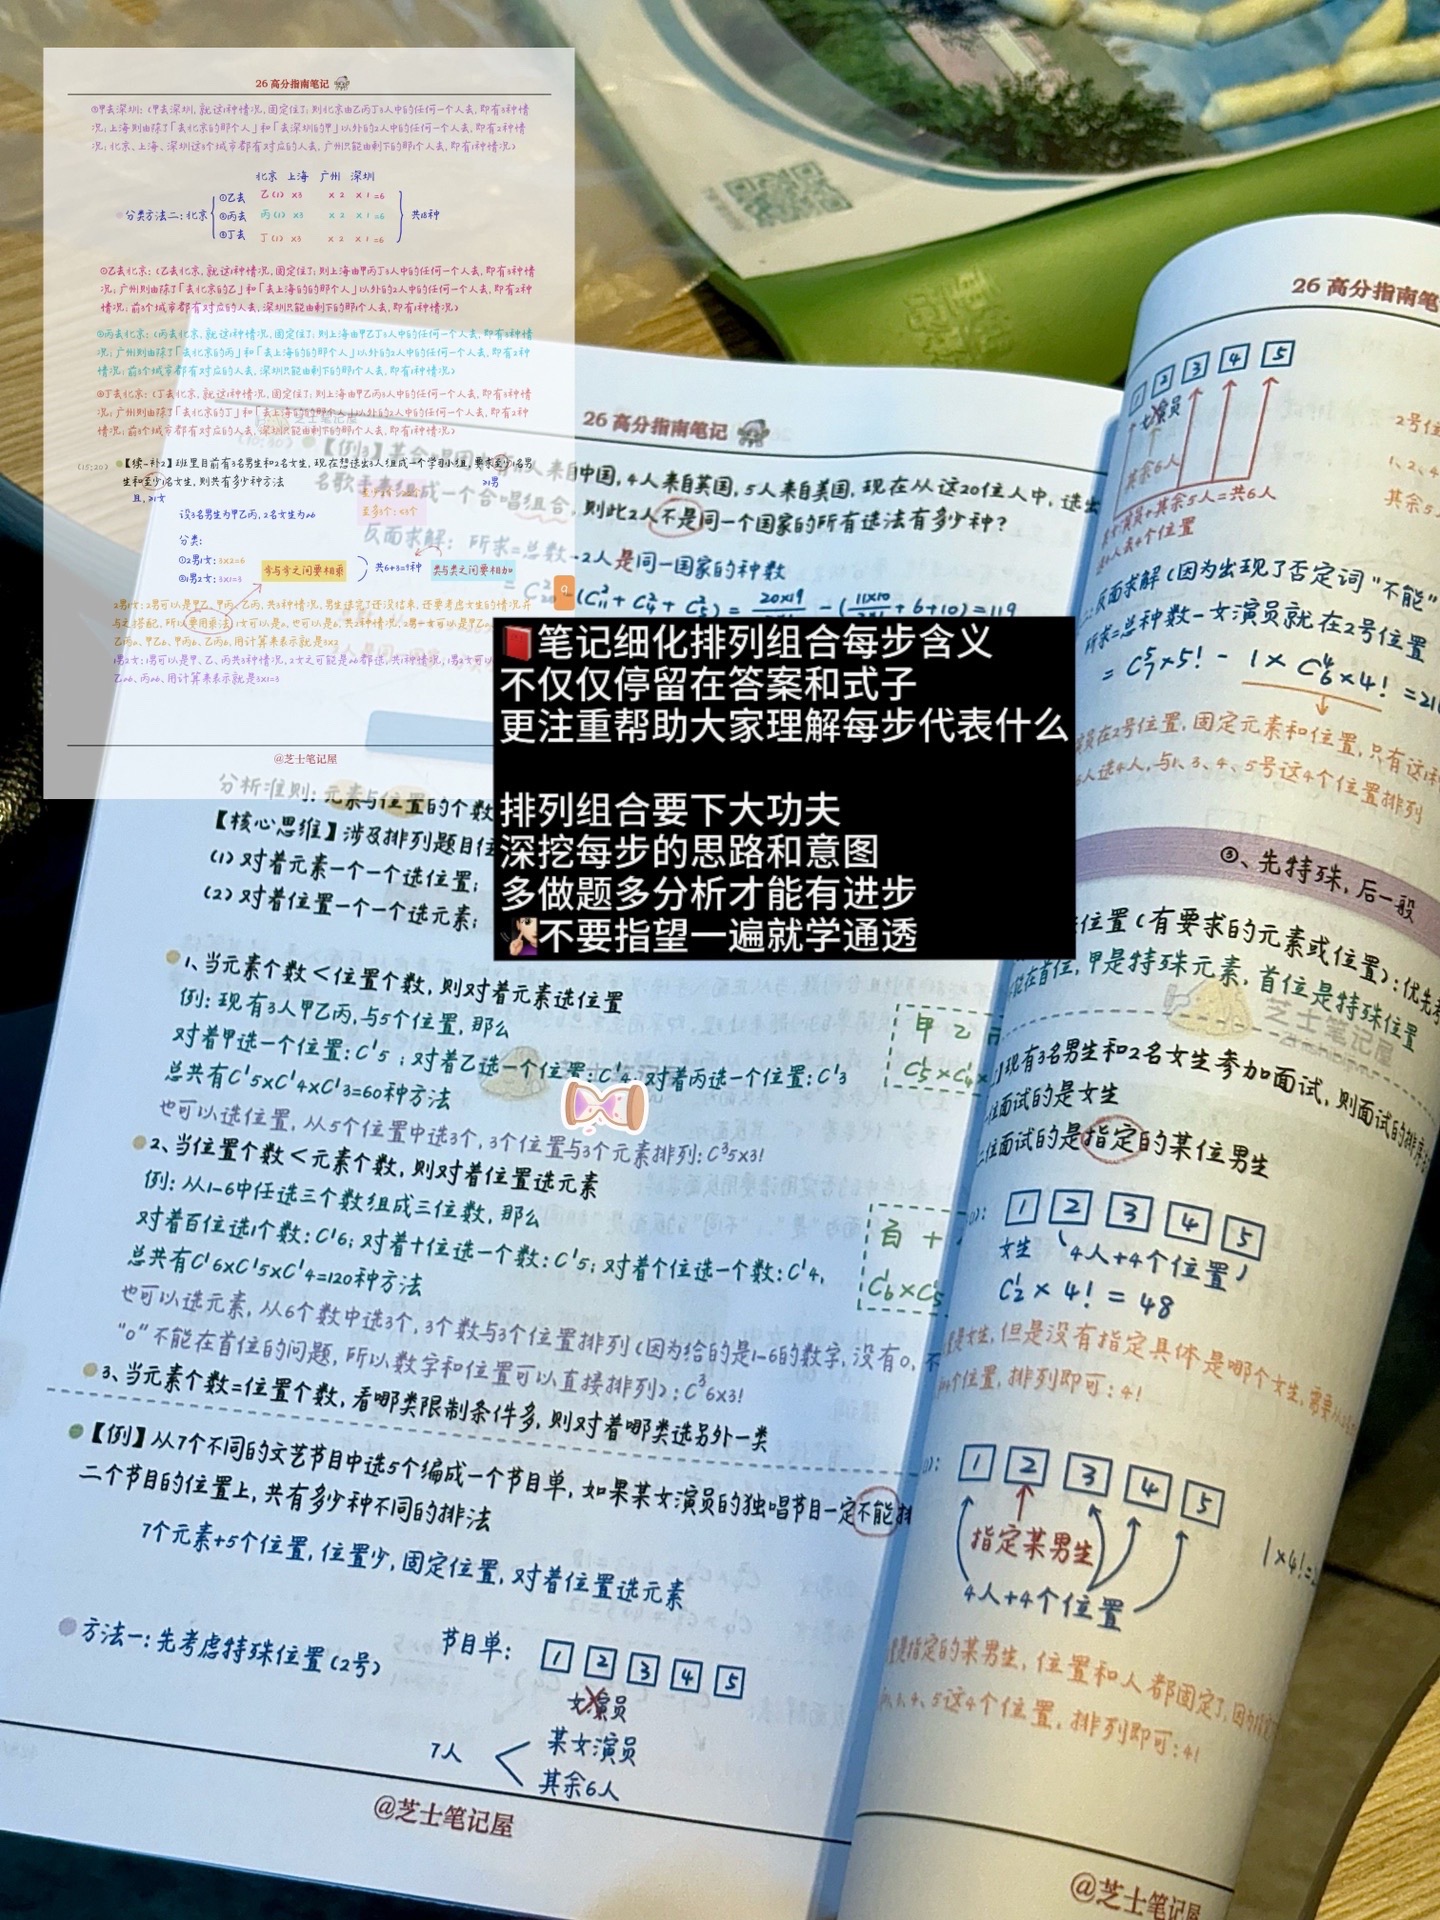 26 高分指南笔记
③甲去深圳:(甲去深圳,就这1种情况,固定住了;则北京由乙丙丁3人中的任何一个人去,即有3种情
况;上海则由除了「去北京的那个人」和「去深圳的甲」以外的2人中的任何一个人去,即有2种情
况;北京、上海、深圳这3个城市都有对应的人去,广州只能由剩下的那1个人去,即有1种情况)
北京 上海 广州 深圳
①乙去 乙(1) ×3 ×2 ×1=6
分类方法二:北京 ②丙去 丙(1) ×3 ×2 ×1=6 共18种
③丁去 丁(1) ×3 ×2 ×1=6
①乙去北京:(乙去北京,就这1种情况,固定住了;则上海由甲丙丁3人中的任何一个人去,即有3种情
况;广州则由除了「去北京的乙」和「去上海的的那个人」以外的2人中的任何一个人去,即有2种
情况;前3个城市都有对应的人去,深圳只能由剩下的那个人去,即有1种情况)
②丙去北京:(丙去北京,就这1种情况,固定住了;则上海由甲乙丁3人中的任何一个人去,即有3种情
况;广州则由除了「去北京的丙」和「去上海的的那个人」以外的2人中的任何一个人去,即有2种
情况;前3个城市都有对应的人去,深圳只能由剩下的那个人去,即有1种情况)
③丁去北京:(丁去北京,就这1种情况,固定住了;则上海由甲乙丙3人中的任何一个人去,即有3种情
况;广州则由除了「去北京的丁」和「去上海的的那个人」以外的2人中的任何一个人去,即有2种
情况;前3个城市都有对应的人去,深圳只能由剩下的那个人去,即有1种情况)
(15;20) 【续-补2】班里目前有3名男生和2名女生,现在想选出3人组成一个学习小组,要求至少1名男
生和至少1名女生,则共有多少种方法 ≥1男
且,≥1女
设3名男生为甲乙丙,2名女生为ab
分类:
①2男1女:3×2=6
②1男2女:3×1=3
步与步之间要相乘 共6+3=9种 类与类之间要相加
2男1女:2男可以是甲乙、甲丙、乙丙,共3种情况,男生选完了还没结束,还要考虑女生的情况,并
与之搭配,所以要用乘法,1女可以是a,也可以是b,共2种情况;2男1女可以是甲乙
乙丙a、甲乙b、甲丙b、乙丙b,用计算来表示就是3×2
1男2女:1男可以是甲、乙、丙共3种情况,2女之可能是ab都选,共1种情况;1男2女可以
乙ab、丙ab、用计算来表示就是3×1=3
@芝士笔记屋
26 高分指南笔记
人来自中国,4人来自英国,5人来自美国,现在从这20位人中,选出
名歌手来组成一个合唱组合,则此2人不是同一个国家的所有选法有多少种?
反面求解:所求=总数-2人是同一国家的种数
= C²₂₀ -(C²₁₁+C²₄+C²₅)= 20×19 -(11×10 +6+10)=119
📕笔记细化排列组合每步含义
不仅仅停留在答案和式子
更注重帮助大家理解每步代表什么
排列组合要下大功夫
深挖每步的思路和意图
多做题多分析才能有进步
不要指望一遍就学通透
分析准则:元素与位置的个数
【核心思维】涉及排列题目
(1)对着元素一个一个选位置;
(2)对着位置一个一个选元素;
1、当元素个数<位置个数,则对着元素选位置
例:现有3人甲乙丙,与5个位置,那么
对着甲选一个位置:C¹5;对着乙选一个位置:C¹4;对着丙选一个位置:C¹3
总共有C¹5×C¹4×C¹3=60种方法
也可以选位置,从5个位置中选3个,3个位置与3个元素排列:C³5×3!
甲 乙
C¹5×C¹4×
2、当位置个数<元素个数,则对着位置选元素
例:从1-6中任选三个数组成三位数,那么
对着百位选1个数:C¹6;对着十位选一个数:C¹5;对着个位选一个数:C¹4,
总共有C¹6×C¹5×C¹4=120种方法
也可以选元素,从6个数中选3个,3个数与3个位置排列(因为给的是1-6的数字,没有0,不
“0”不能在首位的问题,所以数字和位置可以直接排列):C³6×3!
百 十
C¹6×C¹5
3、当元素个数=位置个数,看哪类限制条件多,则对着哪类选另外一类
【例】从7个不同的文艺节目中选5个编成一个节目单,如果某女演员的独唱节目一定不能排
二个节目的位置上,共有多少种不同的排法
7个元素+5个位置,位置少,固定位置,对着位置选元素
方法一:先考虑特殊位置(2号) 节目单:1 2 3 4 5
女演员
7人 某女演员
其余6人
@芝士笔记屋
26 高分指南笔
1 2 3 4 5
女演员
其余6人
其余5人=共6人
2号位
1、2、4
其余5
反面求解(因为出现了否定词“不能”
所求=总种数-女演员就在2号位置
= C⁵₇×5! - 1×C⁴₆×4! =21
员在2号位置,固定元素和位置,只有这1
人选4人,与1、3、4、5号这4个位置排列
③、先特殊,后一般
位置(有要求的元素或位置):优先考
能在首位,甲是特殊元素,首位是特殊位置
芝士笔记屋
现有3名男生和2名女生参加面试,则面试的排
位面试的是女生
二位面试的是指定的某位男生
1 2 3 4 5
女生 4人+4个位置
C¹2 × 4! = 48
是女生,但是没有指定具体是哪个女生,需要
4个位置,排列即可:4!
1 2 3 4 5
指定某男生
4人+4个位置
1×4!=
是指定的某男生,位置和人都固定了,因
3、4、5这4个位置,排列即可:4!
@芝士笔记屋